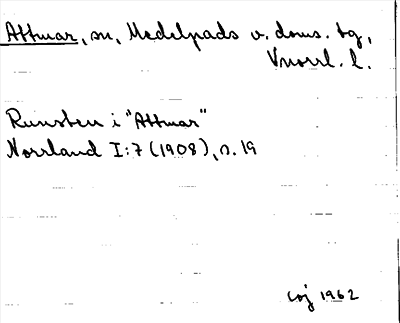 Attmar, sn, Medelpads v. doms. tg,
Vnorrl. l.
Runsten i "Attmar"
Norrland I:7 (1908), s. 19
1962